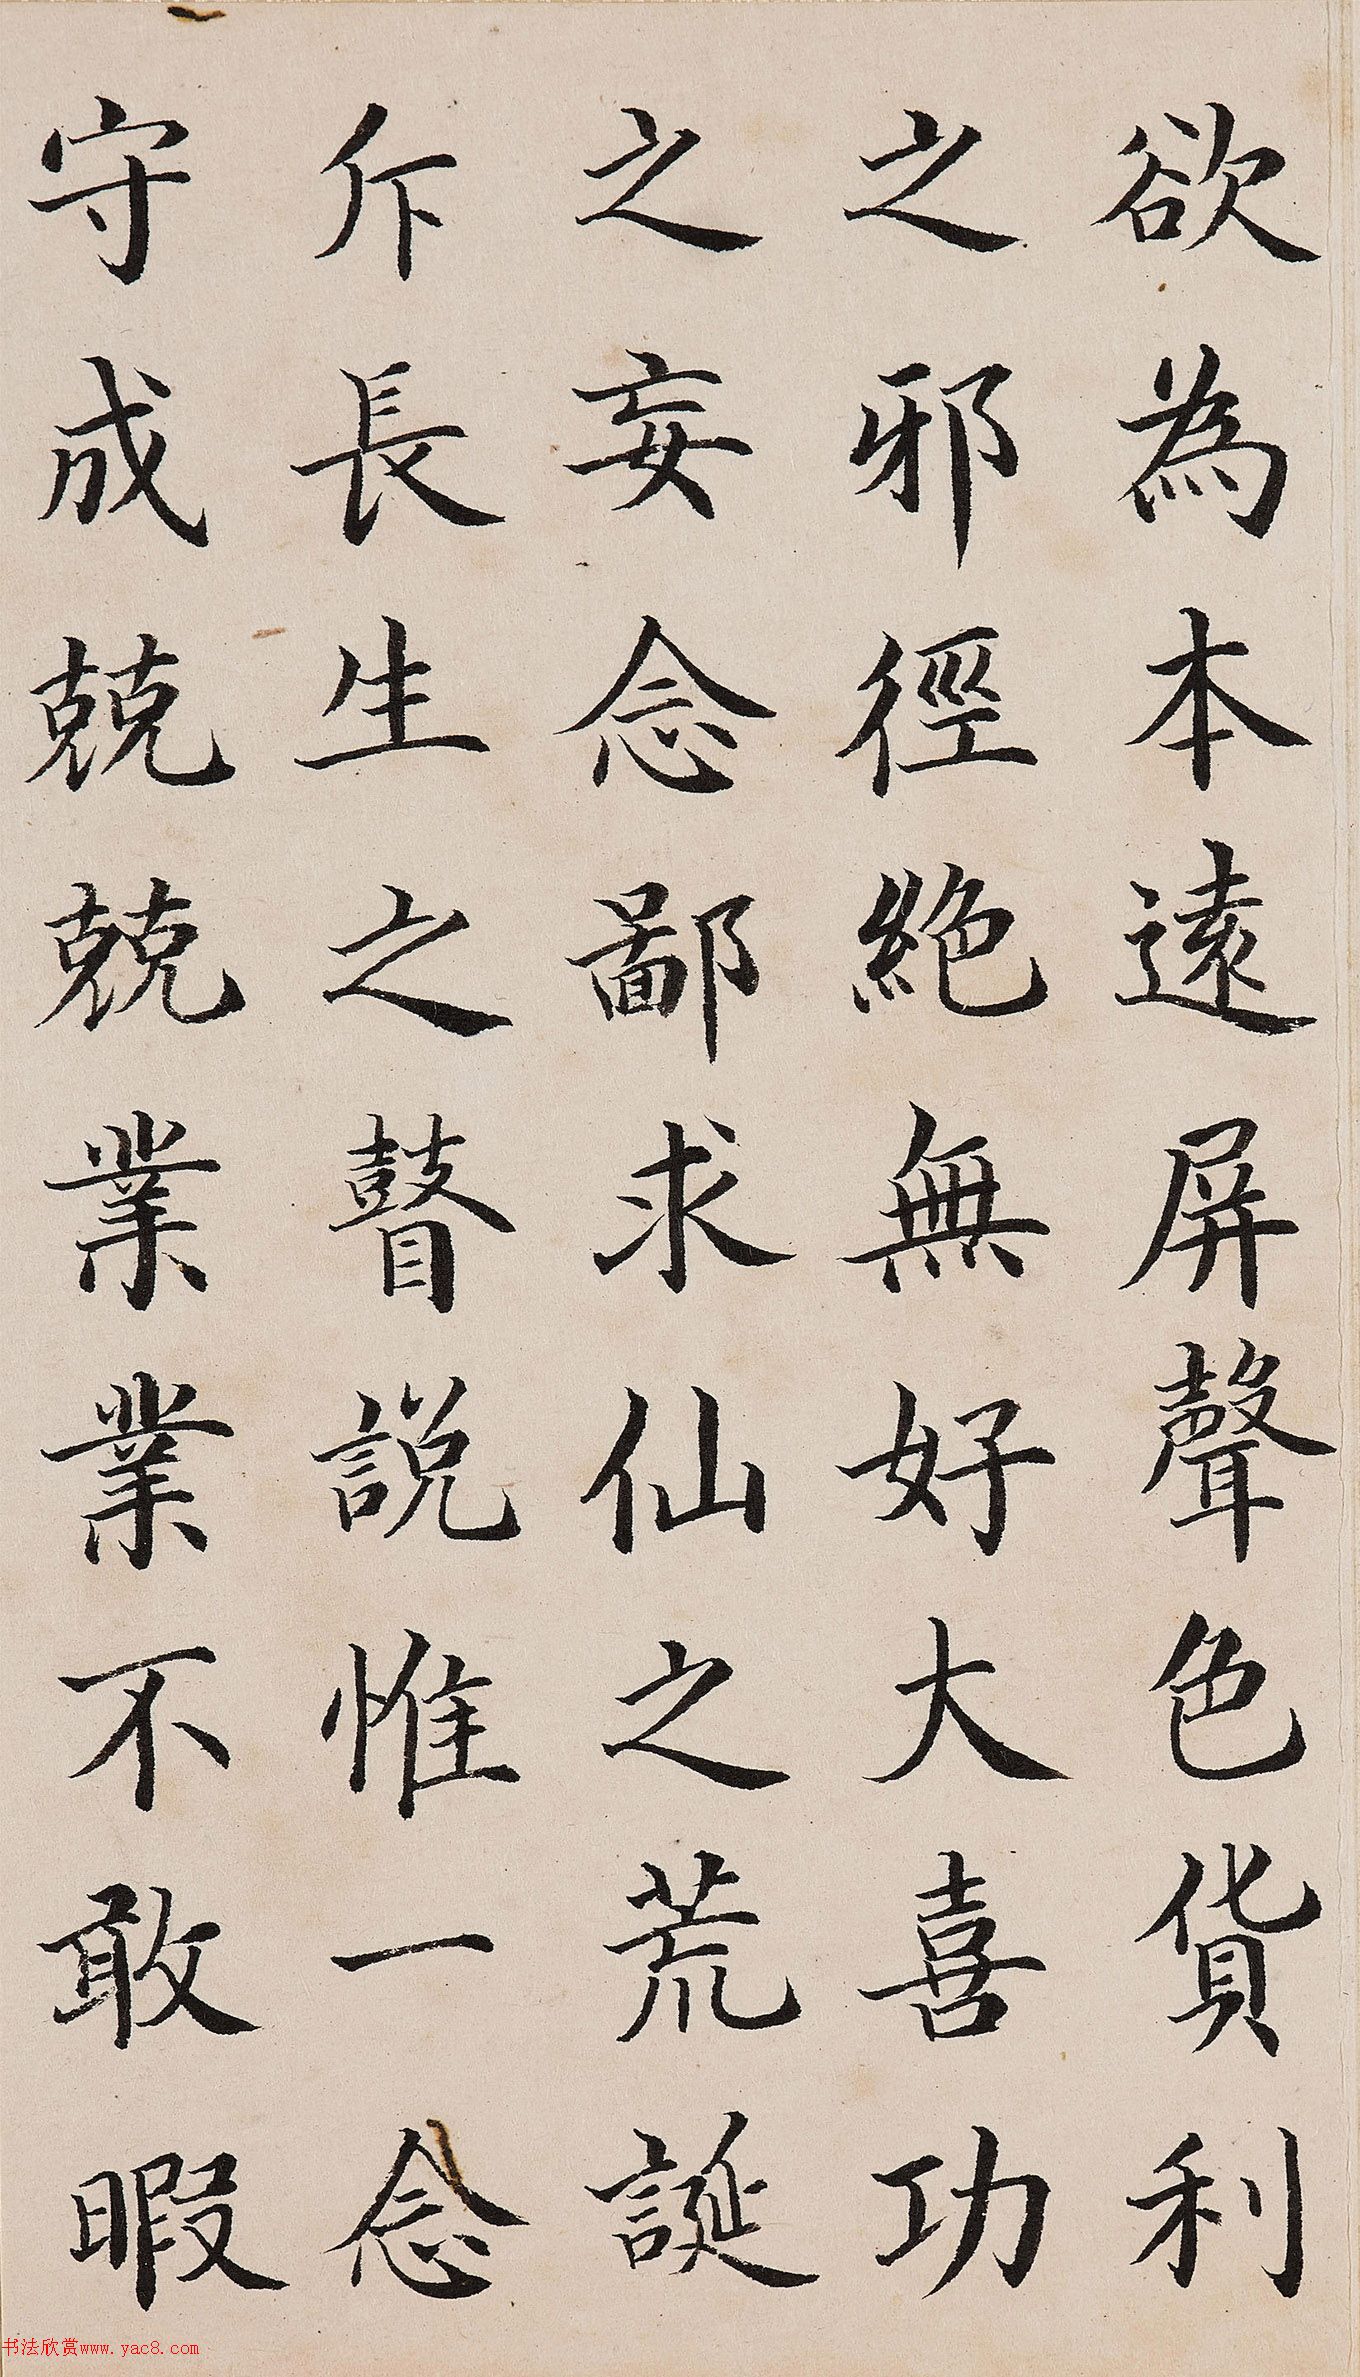 欲為本遠屏聲色貨利
之邪徑絕無好大喜功
之妄念鄙求仙之荒誕
斥長生之瞽説惟一念
守成兢兢業業不敢暇
书法欣赏www.yac8.com